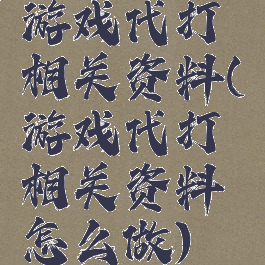 游戏代打
相关资料(
游戏代打
相关资料
怎么做)